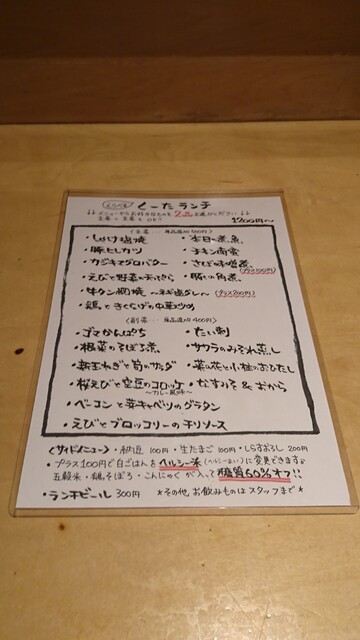 えらべる くーたランチ
↓↓メニューからお好きなものを2品お選びください↓↓
主菜+主菜もOK!!
1200円〜
(主菜… 単品追加500円)
・しゃけ塩焼 ・本日の煮魚
・豚ヒレカツ ・チキン南蛮
・カジキマグロバター ・さば味噌煮(プラス100円)
・えびと野菜の天ぷら ・豚バラ角煮
・牛タン網焼 〜ネギ塩ダレ〜(プラス200円)
・鶏ときくらげの中華炒め
(副菜… 単品追加400円)
・ゴマかんぱち ・たい刺
・根菜のそぼろ煮 ・サワラのみぞれ蒸し
・新玉ねぎと筍のサラダ ・菜の花と小柱のおひたし
・桜えびと空豆のコロッケ 〜カレー風味〜 ・なすみそ&おから
・ベーコンと芽キャベツのグラタン
・えびとブロッコリーのチリソース
〈サイドメニュー〉・納豆100円 ・生たまご100円 ・しらすおろし200円
・プラス100円で白ごはんをヘルシー米(ヘルシーまい)に変更できます♪
五穀米・鶏そぼろ・こんにゃくが入って糖質60%オフ!!
・ランチビール300円 *その他お飲みものはスタッフまで*